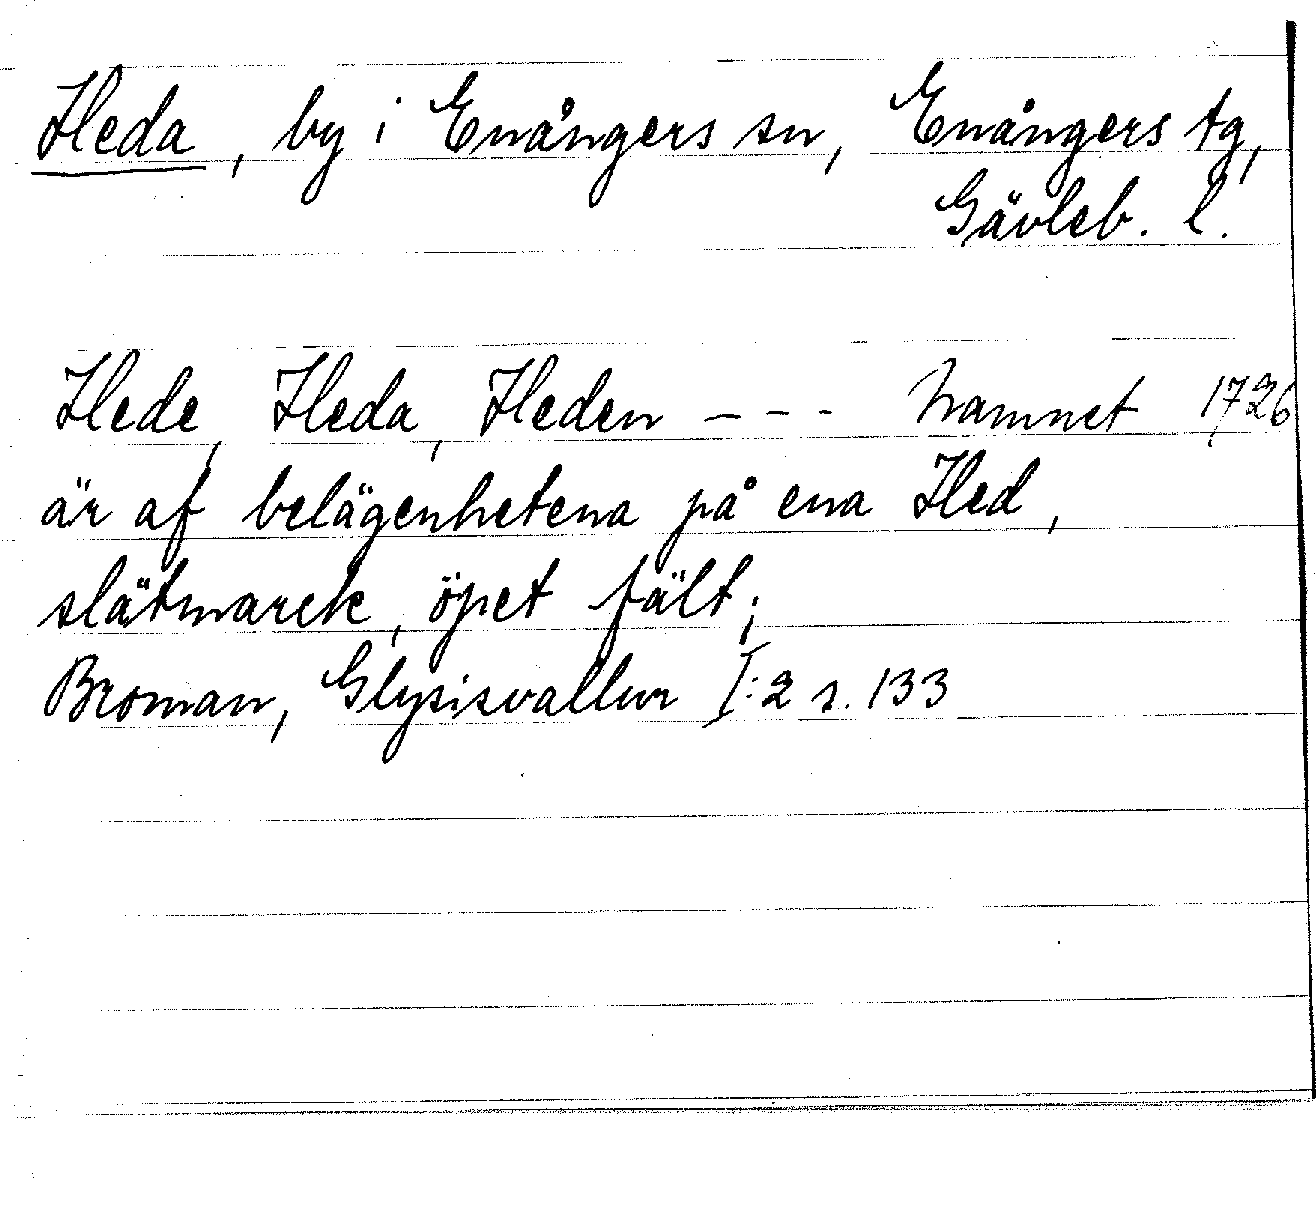 Heda, by i Enångers sn, Enångers tg,
Gävleb. l.
Hede, Heda, Heden --- namnet 1726
är af belägenhetena på ena Hed,
slätmarck, öpet fält;
Broman, Glysisvallur I:2 s. 133